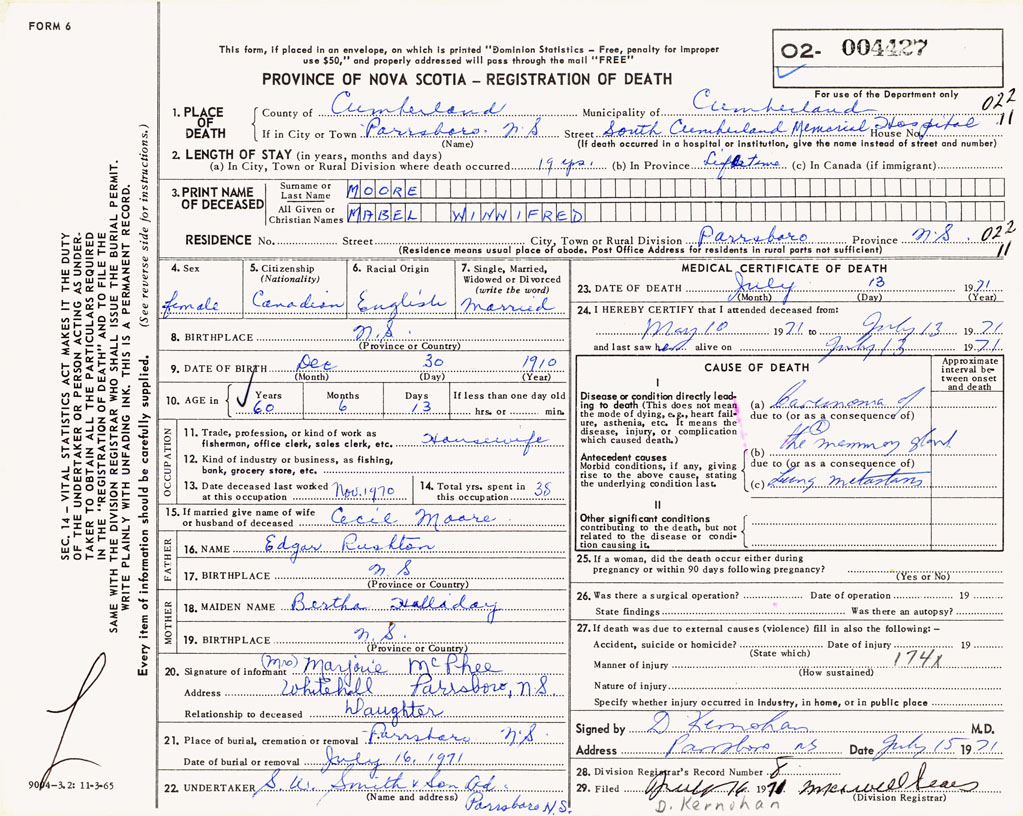 FORM 6
This form, if placed in an envelope, on which is printed "Dominion Statistics – Free, penalty for improper
use $50," and properly addressed will pass through the mail "FREE"
PROVINCE OF NOVA SCOTIA – REGISTRATION OF DEATH
02- 004427
For use of the Department only
022
11
1. PLACE OF DEATH
County of Cumberland Municipality of Cumberland
If in City or Town Parrsboro. N.S Street South Cumberland Memorial Hospital House No.
(Name) (If death occurred in a hospital or institution, give the name instead of street and number)
2. LENGTH OF STAY (in years, months and days)
(a) In City, Town or Rural Division where death occurred 19 yrs. (b) In Province Lifetime (c) In Canada (if immigrant)
3. PRINT NAME OF DECEASED
Surname or Last Name MOORE
All Given or Christian Names MABEL WINNIFRED
RESIDENCE No. Street City, Town or Rural Division Parrsboro Province N.S. 022
(Residence means usual place of abode. Post Office Address for residents in rural parts not sufficient) 11
4. Sex
female
5. Citizenship
(Nationality)
Canadian
6. Racial Origin
English
7. Single, Married,
Widowed or Divorced
(write the word)
Married
8. BIRTHPLACE N.S.
(Province or Country)
9. DATE OF BIRTH Dec 30 1910
(Month) (Day) (Year)
10. AGE in Years Months Days If less than one day old
60 6 13 hrs. or min.
OCCUPATION
11. Trade, profession, or kind of work as
fisherman, office clerk, sales clerk, etc. Housewife
12. Kind of industry or business, as fishing,
bank, grocery store, etc.
13. Date deceased last worked
at this occupation Nov. 1970
14. Total yrs. spent in
this occupation 38
15. If married give name of wife
or husband of deceased Cecil Moore
FATHER
16. NAME Edgar Rushton
17. BIRTHPLACE N.S
(Province or Country)
MOTHER
18. MAIDEN NAME Bertha Halladay
19. BIRTHPLACE N.S.
(Province or Country)
20. Signature of informant (Mrs) Marjorie McPhee
Address Whitehall Parrsboro, N.S
Relationship to deceased Daughter
21. Place of burial, cremation or removal Parrsboro N.S.
Date of burial or removal July 16, 1971
22. UNDERTAKER S. W. Smith & Son Ltd.
(Name and address) Parrsboro N.S.
MEDICAL CERTIFICATE OF DEATH
23. DATE OF DEATH July 13 1971
(Month) (Day) (Year)
24. I HEREBY CERTIFY that I attended deceased from:
May 10 1971 to July 13 1971
and last saw her alive on July 13 1971
CAUSE OF DEATH
Approximate
interval be-
tween onset
and death
I
Disease or condition directly lead-
ing to death (This does not mean
the mode of dying, e.g., heart fail-
ure, asthenia, etc. It means the
disease, injury, or complication
which caused death.)
(a) Carcinoma of
due to (or as a consequence of)
1
the mammary gland
Antecedent causes
Morbid conditions, if any, giving
rise to the above cause, stating
the underlying condition last.
(b)
due to (or as a consequence of)
(c) Lung metastasis
II
Other significant conditions
contributing to the death, but not
related to the disease or condi-
tion causing it.
25. If a woman, did the death occur either during
pregnancy or within 90 days following pregnancy?
(Yes or No)
26. Was there a surgical operation? Date of operation 19
State findings Was there an autopsy?
27. If death was due to external causes (violence) fill in also the following: –
Accident, suicide or homicide? Date of injury 19
(State which)
Manner of injury 174X
(How sustained)
Nature of injury
Specify whether injury occurred in Industry, in home, or in public place
Signed by D Kernohan M.D.
Address Parrsboro NS Date July 15 1971
28. Division Registrar's Record Number 8
29. Filed July 16 1971 Maxwell Sears
(Division Registrar)
D. Kernohan
SEC. 14 – VITAL STATISTICS ACT MAKES IT THE DUTY
OF THE UNDERTAKER OR PERSON ACTING AS UNDER-
TAKER TO OBTAIN ALL THE PARTICULARS REQUIRED
IN THE "REGISTRATION OF DEATH" AND TO FILE THE
SAME WITH THE DIVISION REGISTRAR WHO SHALL ISSUE THE BURIAL PERMIT.
WRITE PLAINLY WITH UNFADING INK. THIS IS A PERMANENT RECORD.
Every item of information should be carefully supplied. (See reverse side for instructions.)
9004-3.2: 11-3-65